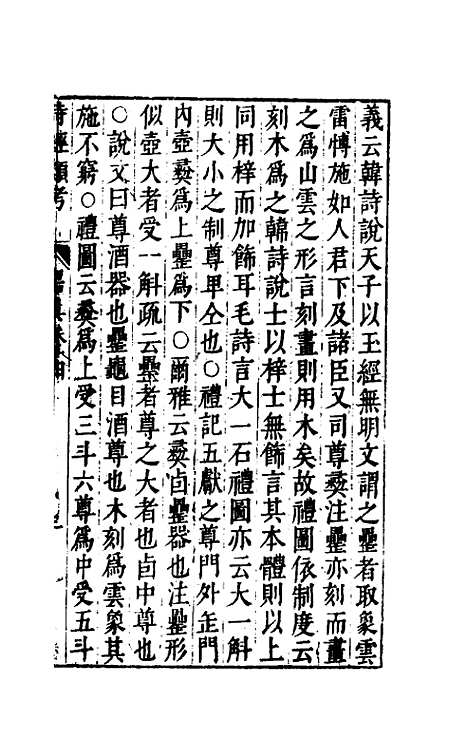 義云韓詩說天子以玉經無明文謂之罍者取象雲
雷愽施如人君下及諸臣又司尊彝注罍亦刻而畫
之爲山雲之形言刻畫則用木矣故禮圖依制度云
刻木爲之韓詩說士以梓士無飾言其本體則以上
同用梓而加飾耳毛詩言大一石禮圖亦云大一斛
則大小之制尊卑仝也○禮記五獻之尊門外缶門
內壺彝爲上罍爲下○爾雅云彝卣罍器也注罍形
似壺大者受一斛疏云罍者尊之大者也卣中尊也
○說文曰尊酒器也罍龜目酒尊也木刻爲雲象其
施不窮○禮圖云彝爲上受三斗六尊爲中受五斗
詩經類考